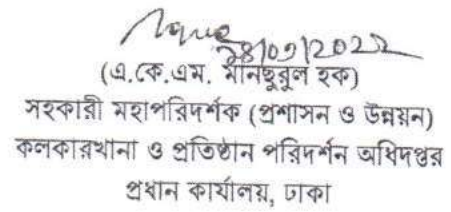 28/09/2022
(এ.কে.এম. মানছুরুল হক)
সহকারী মহাপরিদর্শক (প্রশাসন ও উন্নয়ন)
কলকারখানা ও প্রতিষ্ঠান পরিদর্শন অধিদপ্তর
প্রধান কার্যালয়, ঢাকা